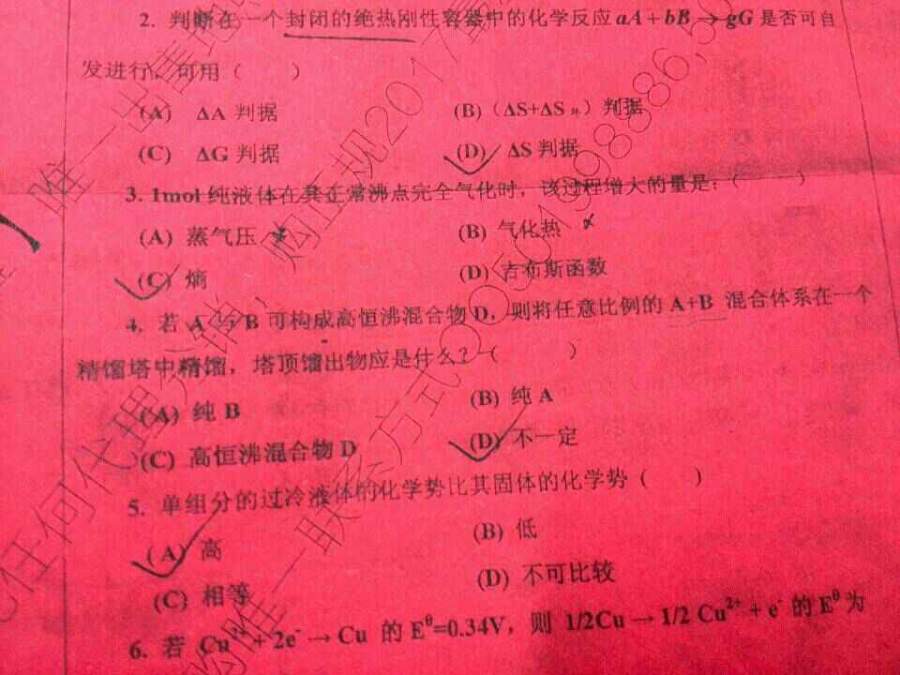 2. 判断在一个封闭的绝热刚性容器中的化学反应 aA + bB → gG 是否可自
发进行，可用（ ）
(A) ΔA 判据 (B)（ΔS+ΔS ）判据
(C) ΔG 判据 (D) ΔS 判据
3. 1mol 纯液体在其正常沸点完全气化时，该过程增大的量是：（ ）
(A) 蒸气压 (B) 气化热
(C) 熵 (D) 吉布斯函数
4. 若 A 与 B 可构成高恒沸混合物 D，则将任意比例的 A+B 混合体系在一个
精馏塔中精馏，塔顶馏出物应是什么？（ ）
(A) 纯 B (B) 纯 A
(C) 高恒沸混合物 D (D) 不一定
5. 单组分的过冷液体的化学势比其固体的化学势（ ）
(A) 高 (B) 低
(C) 相等 (D) 不可比较
6. 若 Cu²⁺ + 2e⁻ → Cu 的 E^θ=0.34V，则 1/2Cu → 1/2 Cu²⁺ + e⁻ 的 E^θ 为